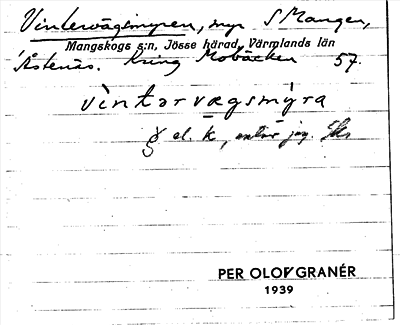 Vintervägsmyren, myr S Mangen,
Mangskogs s:n, Jösse härad, Värmlands län
Åstenäs. Kring Mobäcken 57.
vintərvægsmýra
ɣ el. k, antar jag.
PER OLOF GRANÉR
1939